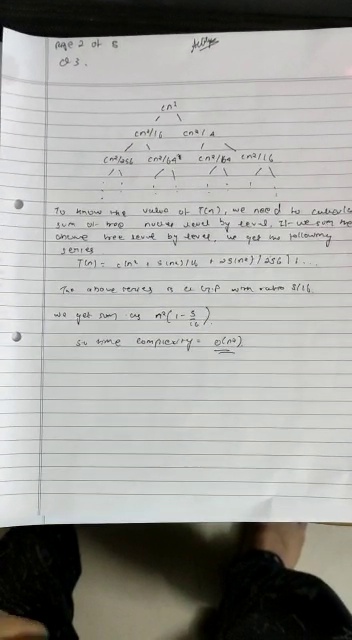 page 2 of 8
Q3.
cn²
cn²/16 cn²/4
cn²/256 cn²/64 cn²/64 cn²/16
To know the value of T(n), we need to calculate
sum of tree nodes level by level. If we sum the
above tree level by level, we get the following
series
T(n) = c(n² + 5(n²)/16 + 25(n²)/256) + ...
The above series is a G.P with ratio 5/16.
we get sum as n²(1 - 5/16)
so time complexity = O(n²)